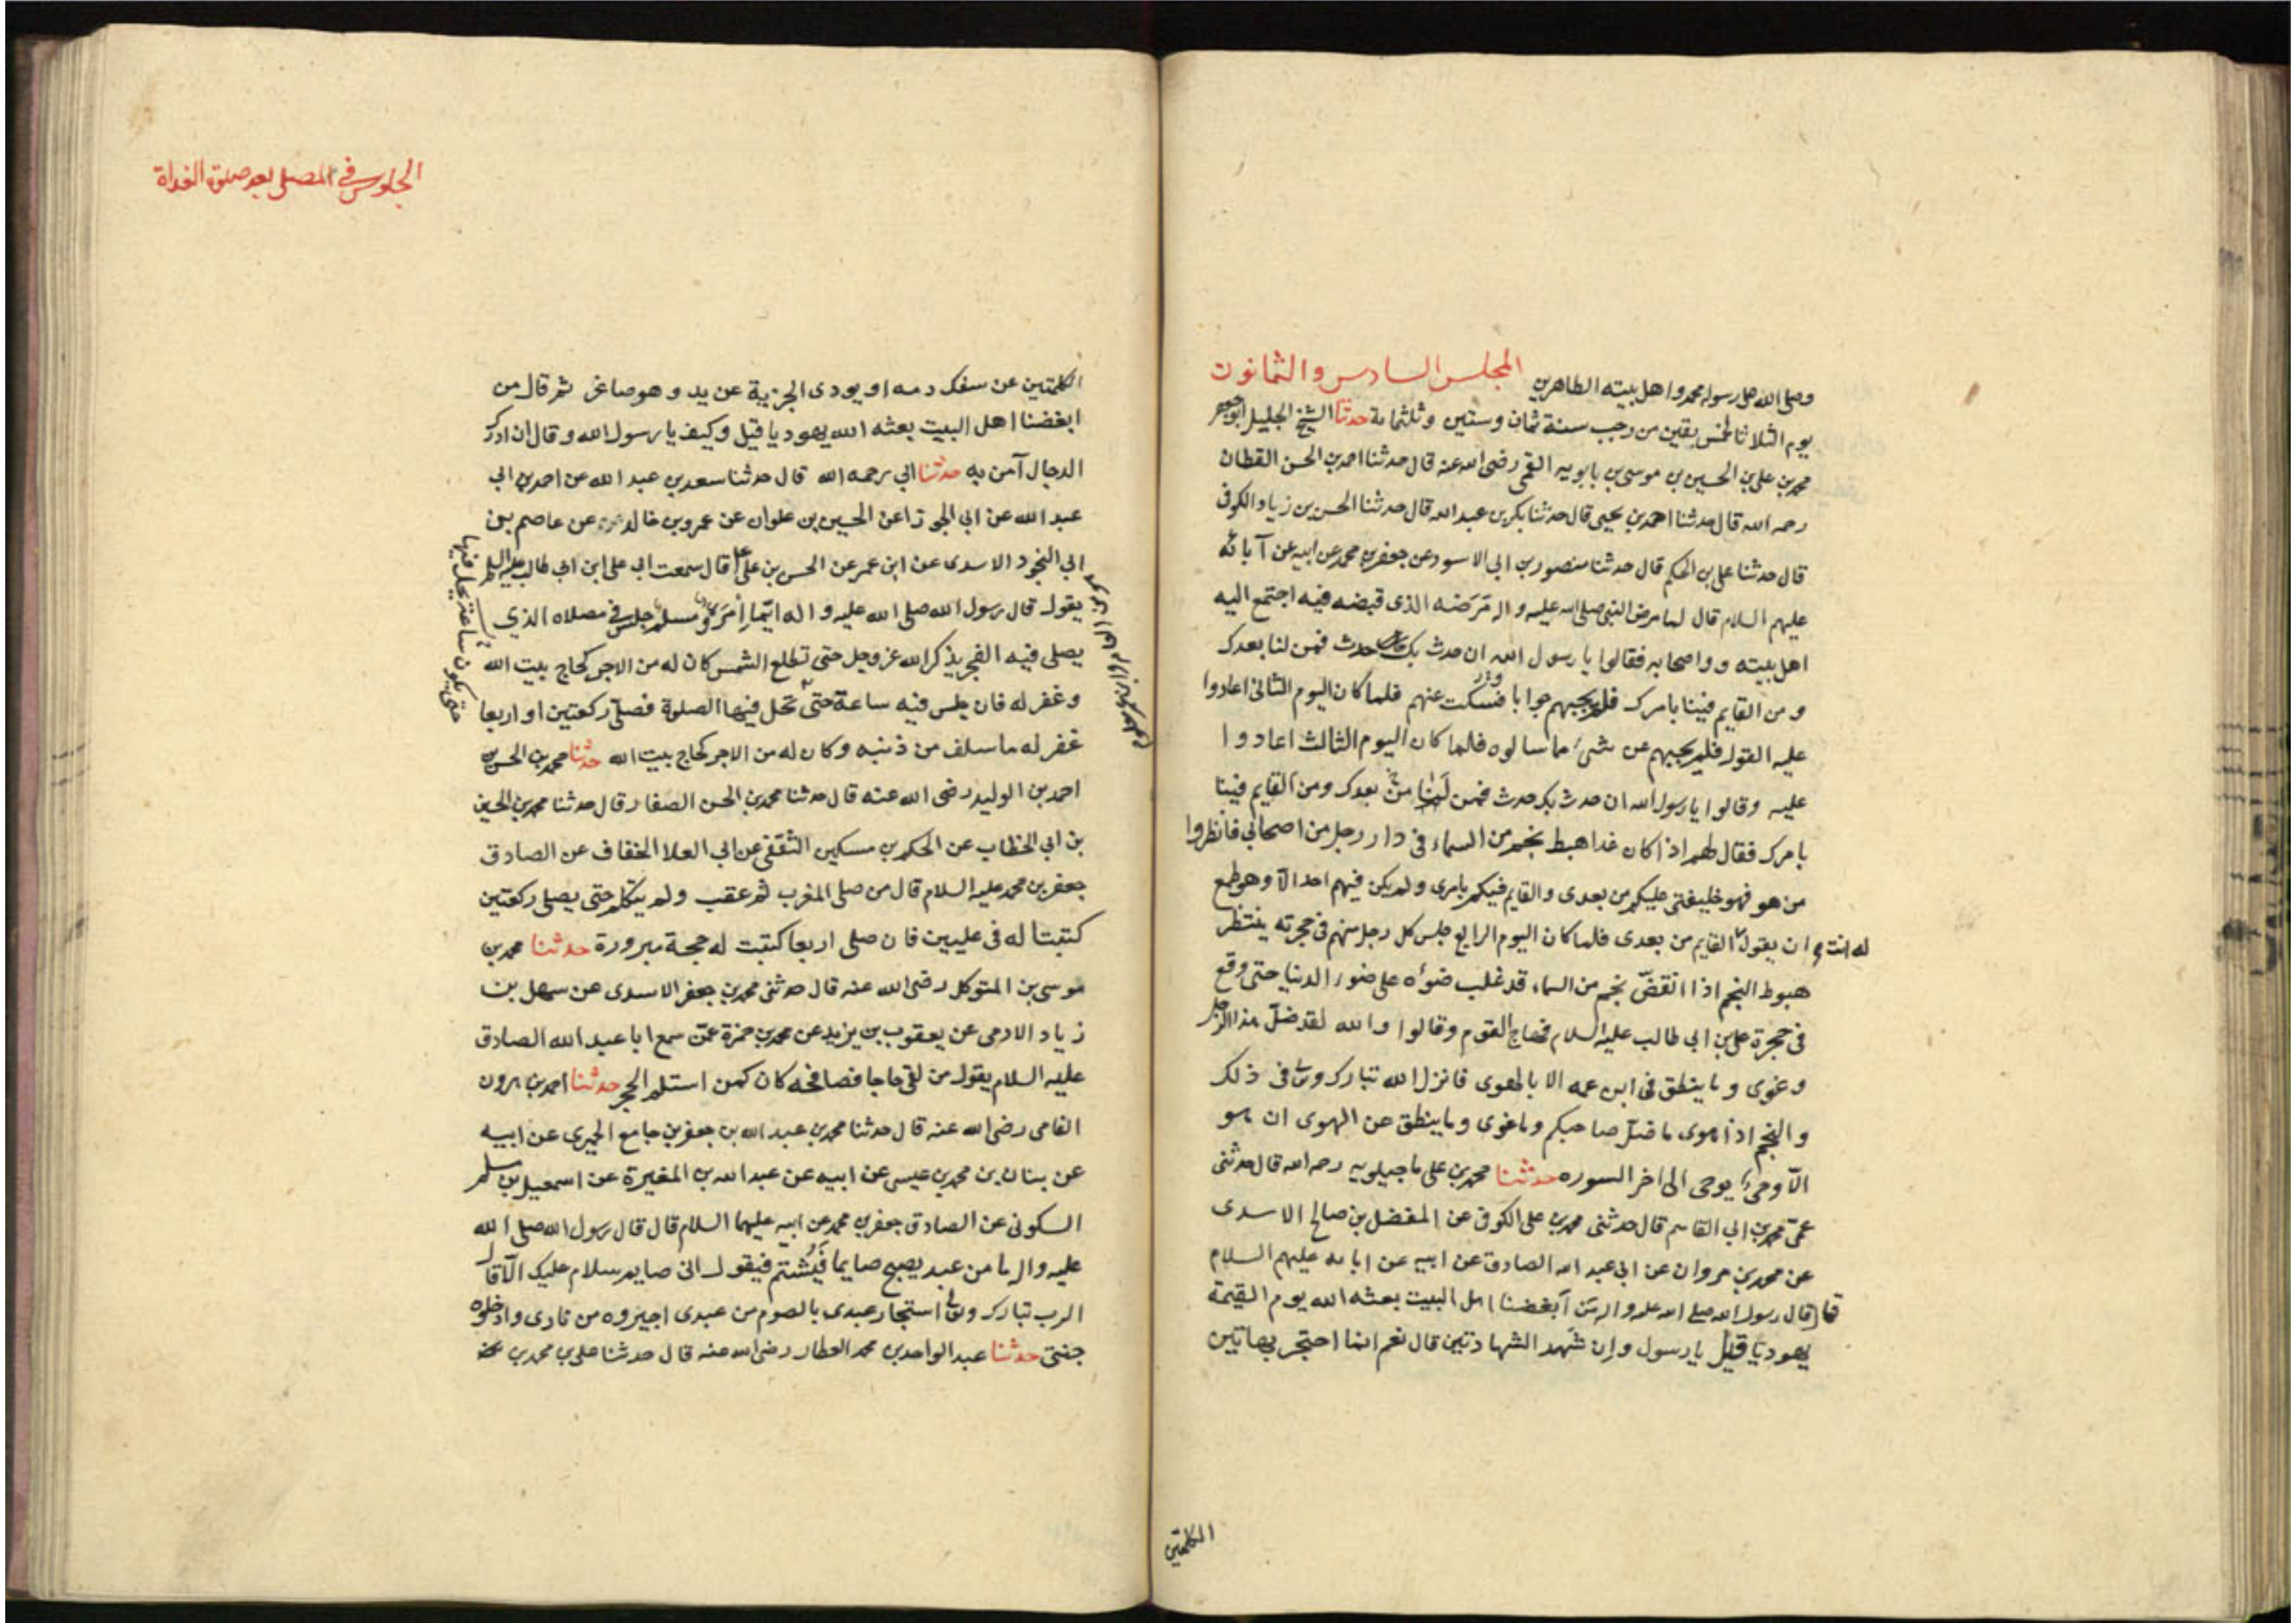 وصلى الله على رسوله محمد واهل بيته الطاهرين المجلس السادس والثمانون
يوم الثلاثا لخمس بقين من رجب سنة ثمان وستين وثلثماىة حدثنا الشيخ الجليل ابوجعفر
محمد بن على بن الحسين بن موسى بن بابويه القمى رضى الله عنه قال حدثنا احمد بن الحسن القطان
رحمه الله قال حدثنا احمد بن يحيى قال حدثنا بكر بن عبد الله قال حدثنا الحسن بن زياد الكوفى
قال حدثنا على بن الحكم قال حدثنا منصور بن ابى الاسود عن جعفر بن محمد عن ابيه عن آبائه
عليهم السلام قال لما مرض النبى صلى الله عليه واله مرضه الذى قبضه فيه اجتمع اليه
اهل بيته و واصحابه فقالوا يا رسول الله ان حدث بك حدث فمن لنا بعدك
ومن القايم فينا بامرك فلم يجبهم جوابا وسكت عنهم فلما كان اليوم الثانى اعادوا
عليه القول فلم يجبهم عن شىء مما سالوه فلما كان اليوم الثالث اعادوا
عليه وقالوا يا رسول الله ان حدث بك حدث فمن لنا من بعدك ومن القايم فينا
بامرك فقال لهم اذا كان غدا هبط نجم من السماء فى دار رجل من اصحابى فانظروا
من هو فهو خليفتى عليكم من بعدى والقايم فيكم بامرى ولم يكن فيهم احد الا وهو يطمع
ان يقول له انت القايم من بعدى فلما كان اليوم الرابع جلس كل رجل منهم فى حجرته ينتظر
هبوط النجم اذا انقضّ نجم من السماء قد غلب ضوءه على ضوء الدنيا حتى وقع
فى حجرة على بن ابى طالب عليه السلام فهاج القوم وقالوا والله لقد ضلّ هذا الرجل
وغوى وما ينطق فى ابن عمه الا بالهوى فانزل الله تبارك وتعالى فى ذلك
والنجم اذا هوى ما ضلّ صاحبكم وما غوى وما ينطق عن الهوى ان هو
الّا وحى يوحى الى اخر السوره حدثنا محمد بن على ماجيلويه رحمه الله قال حدثنى
عمّى محمد بن ابى القاسم قال حدثنى محمد بن على الكوفى عن المفضل بن صالح الاسدى
عن محمد بن مروان عن ابى عبد الله الصادق عن ابيه عن ابايه عليهم السلام
قال قال رسول الله صلى الله عليه واله من ابغضنا اهل البيت بعثه الله يوم القيمة
يهوديّا قيل يا رسول وان شهد الشهادتين قال نعم انما احتجر بهاتين
الكلمتين
الجلوس فى المصلى بعد صلوة الغداة
الكلمتين عن سفك دمه او يودى الجزية عن يد وهو صاغر ثم قال من
ابغضنا اهل البيت بعثه الله يهوديا قيل وكيف يا رسول الله وقال ان ادرك
الدجال آمن به حدثنا ابى رحمه الله قال حدثنا سعد بن عبد الله عن احمد بن ابى
عبد الله عن ابى الجوزا عن الحسين بن علوان عن عمرو بن خالد عن عاصم بن
ابى النجود الاسدى عن ابن عمر عن الحسن بن على قال سمعت ابى على ابن ابى طالب عليه السلم
يقول قال رسول الله صلى الله عليه واله ايّما امرىء مسلم جلس فى مصلاه الذى
يصلى فيه الفجر يذكر الله عز وجل حتى تطلع الشمس كان له من الاجر كحاج بيت الله
وغفر له فان جلس فيه ساعة حتى تحل فيها الصلوة فصلّى ركعتين او اربعا
حتى يكون ساعة تحل فيها
غفر له ما سلف من ذنبه وكان له من الاجر كحاج بيت الله حدثنا محمد بن الحسن بن
احمد بن الوليد رضى الله عنه قال حدثنا محمد بن الحسن الصفار قال حدثنا محمد بن الحسين
بن ابى الخطاب عن الحكم بن مسكين الثقفى عن ابى العلا الخفاف عن الصادق
جعفر بن محمد عليه السلام قال من صلى المغرب ثم عقب ولم يتكلم حتى يصلى ركعتين
كتبتا له فى عليين فان صلى اربعا كتبت له حجة مبرورة حدثنا محمد بن
موسى بن المتوكل رضى الله عنه قال حدثنى محمد بن جعفر الاسدى عن سهل بن
زياد الادمى عن يعقوب بن يزيد عن محمد بن حمزة عمّن سمع ابا عبد الله الصادق
عليه السلام يقول من لقى حاجا فصافحه كان كمن استلم الحجر حدثنا احمد بن هرون
الفامى رضى الله عنه قال حدثنا محمد بن عبد الله بن جعفر بن جامع الحميرى عن ابيه
عن بنان بن محمد بن عيسى عن ابيه عن عبد الله بن المغيرة عن اسمعيل بن مسلم
السكونى عن الصادق جعفر بن محمد عن ابيه عليهما السلام قال قال رسول الله صلى الله
عليه واله ما من عبد يصبح صايما فيُشتم فيقول انى صايم سلام عليك الّا قال
الرب تبارك وتعالى استجار عبدى بالصوم من عبدى اجيروه من نارى وادخلوه
جنتى حدثنا عبد الواحد بن محمد العطار رضى الله عنه قال حدثنا على بن محمد بن